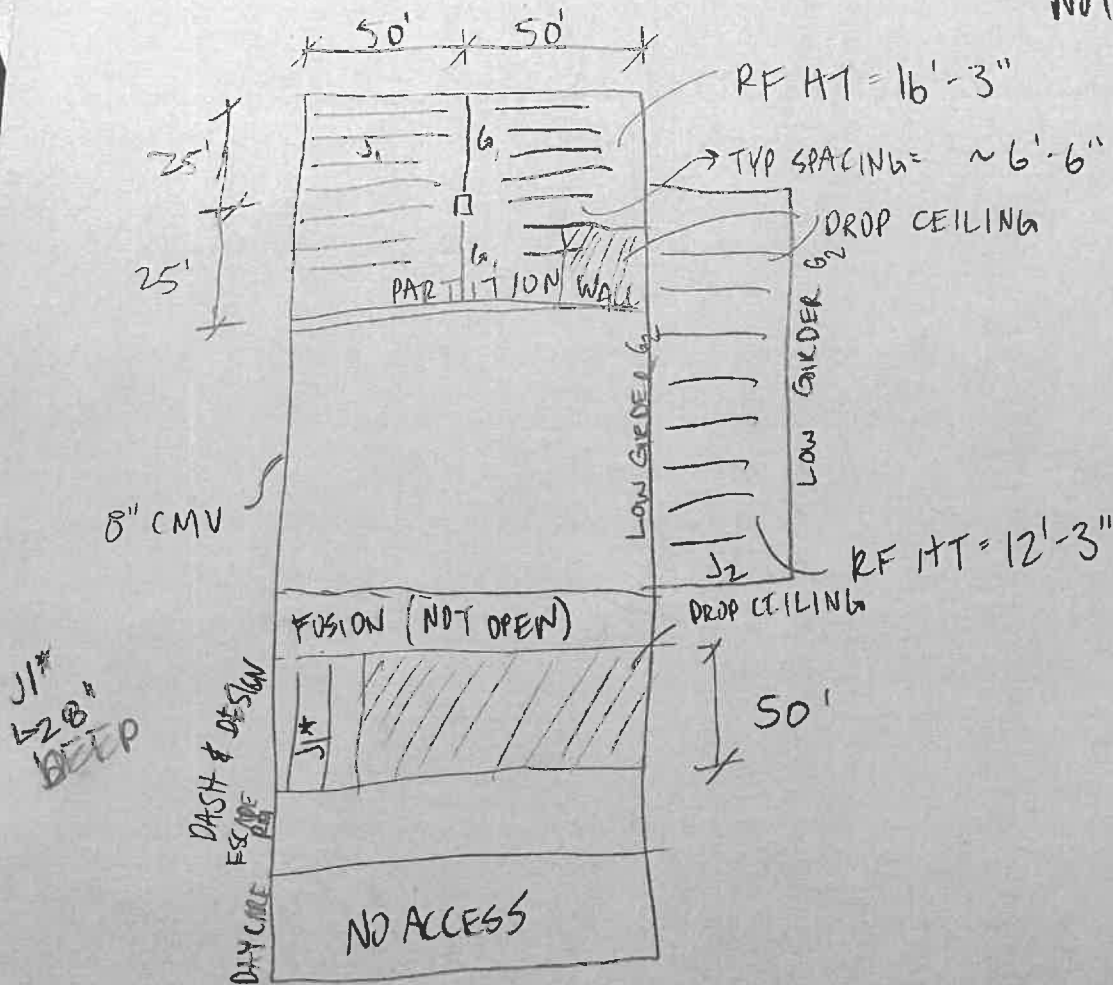 NOT
50' 50'
RF HT = 16'-3"
25'
J1
G1
TYP SPACING= ~ 6'-6"
DROP CEILING
25'
G1
PARTITION WALL
LOW GIRDER G2
LOW GIRDER G2
8" CMU
J2
RF HT = 12'-3"
FUSION (NOT OPEN)
DROP CEILING
J1*
28"
DEEP
DASH & DESIGN
J1*
50'
ESCAPE
RM
DAYCARE
NO ACCESS